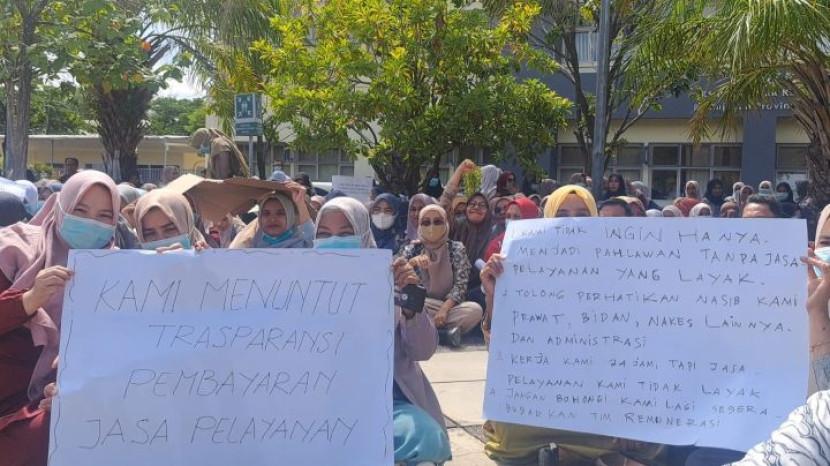 KAMI MENUNTUT
TRASPARANSI
PEMBAYARAN
JASA PELAYANAN
KAMI TIDAK INGIN HANYA.
MENJADI PAHLAWAN TANPA JASA
PELAYANAN YANG LAYAK.
TOLONG PERHATIKAN NASIB KAMI
PRAWAT, BIDAN, NAKES LAINNYA.
DAN ADMINISTRASI
KERJA KAMI 24 JAM, TAPI JASA.
PELAYANAN KAMI TIDAK LAYAK
JANGAN BOHONGI KAMI LAGI SEGERA.
BUBARKAN TIM REMUNERASI
Provin